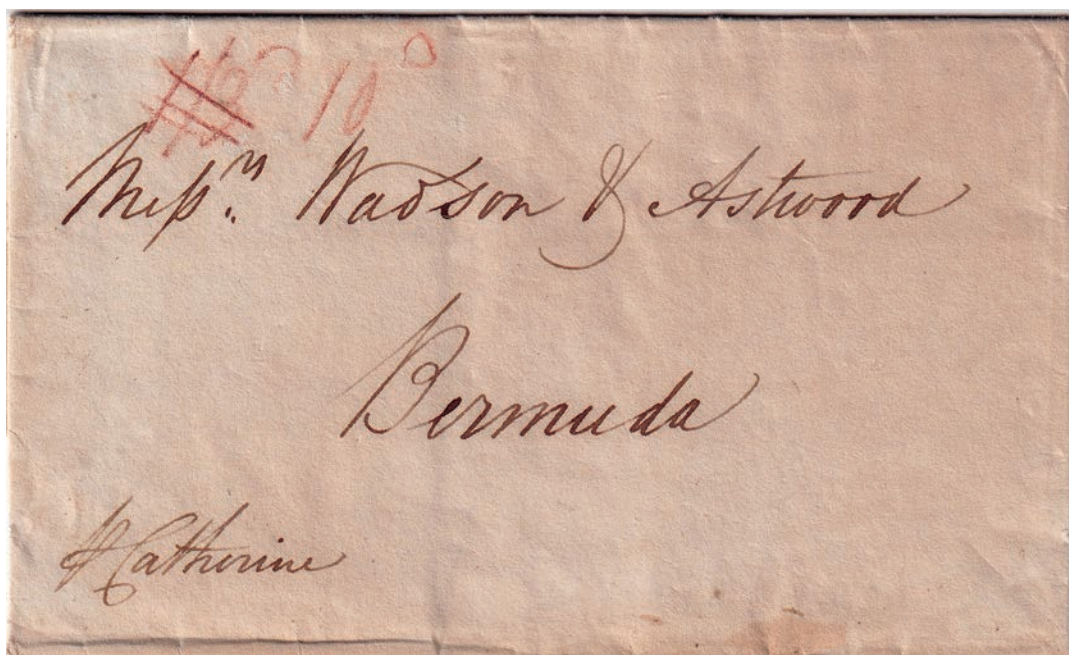 10
Meſs<sup>rs</sup> Wadson & Astwood
Bermuda
⅌ Catherine